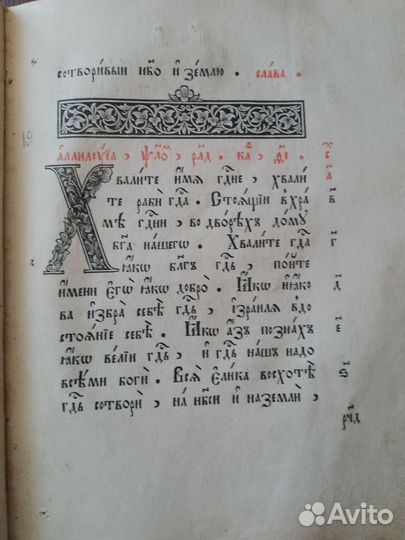 сотвори́вый нб҃о и҆ зе́млю . сла́ва
19
а҆ллилꙋ́їа , ѱало́м , рл҃д . ка҃ , і҃
Хвали́те и҆́мя гд҇не , хвали́
те раби́ гд҇а . Стоѧ́щїи в̾хра́
мѣ гд҇ни , во дво́рѣхъ до́мꙋ
бг҃а на́шегѡ . Хвали́те гд҇а
ꙗ҆́кѡ бл҃гъ гд҇ь , по́йте
и҆́мени є҆гѡ̀ ꙗ҆́кѡ добро̀ . Ꙗ҆́кѡ и҆ꙗ҆́ко
ва и҆збра̀ себѣ̀ гд҇ь , і҆зра́илѧ в̾до
стоѧ́нїе себѣ̀ . Ꙗ҆́кѡ а҆́зъ позна́хъ
ꙗ҆́кѡ ве́лїи гд҇ь , и҆ гд҇ь на́шъ надо
всѣ́ми бо́ги . Всѧ̀ є҆ли́ка восхотѣ̀
гд҇ь сотворѝ , на нб҃си и҆ на землѝ ,
в҃
г҃
д҃
є҃
ѕ҃
рч҃д
Avito